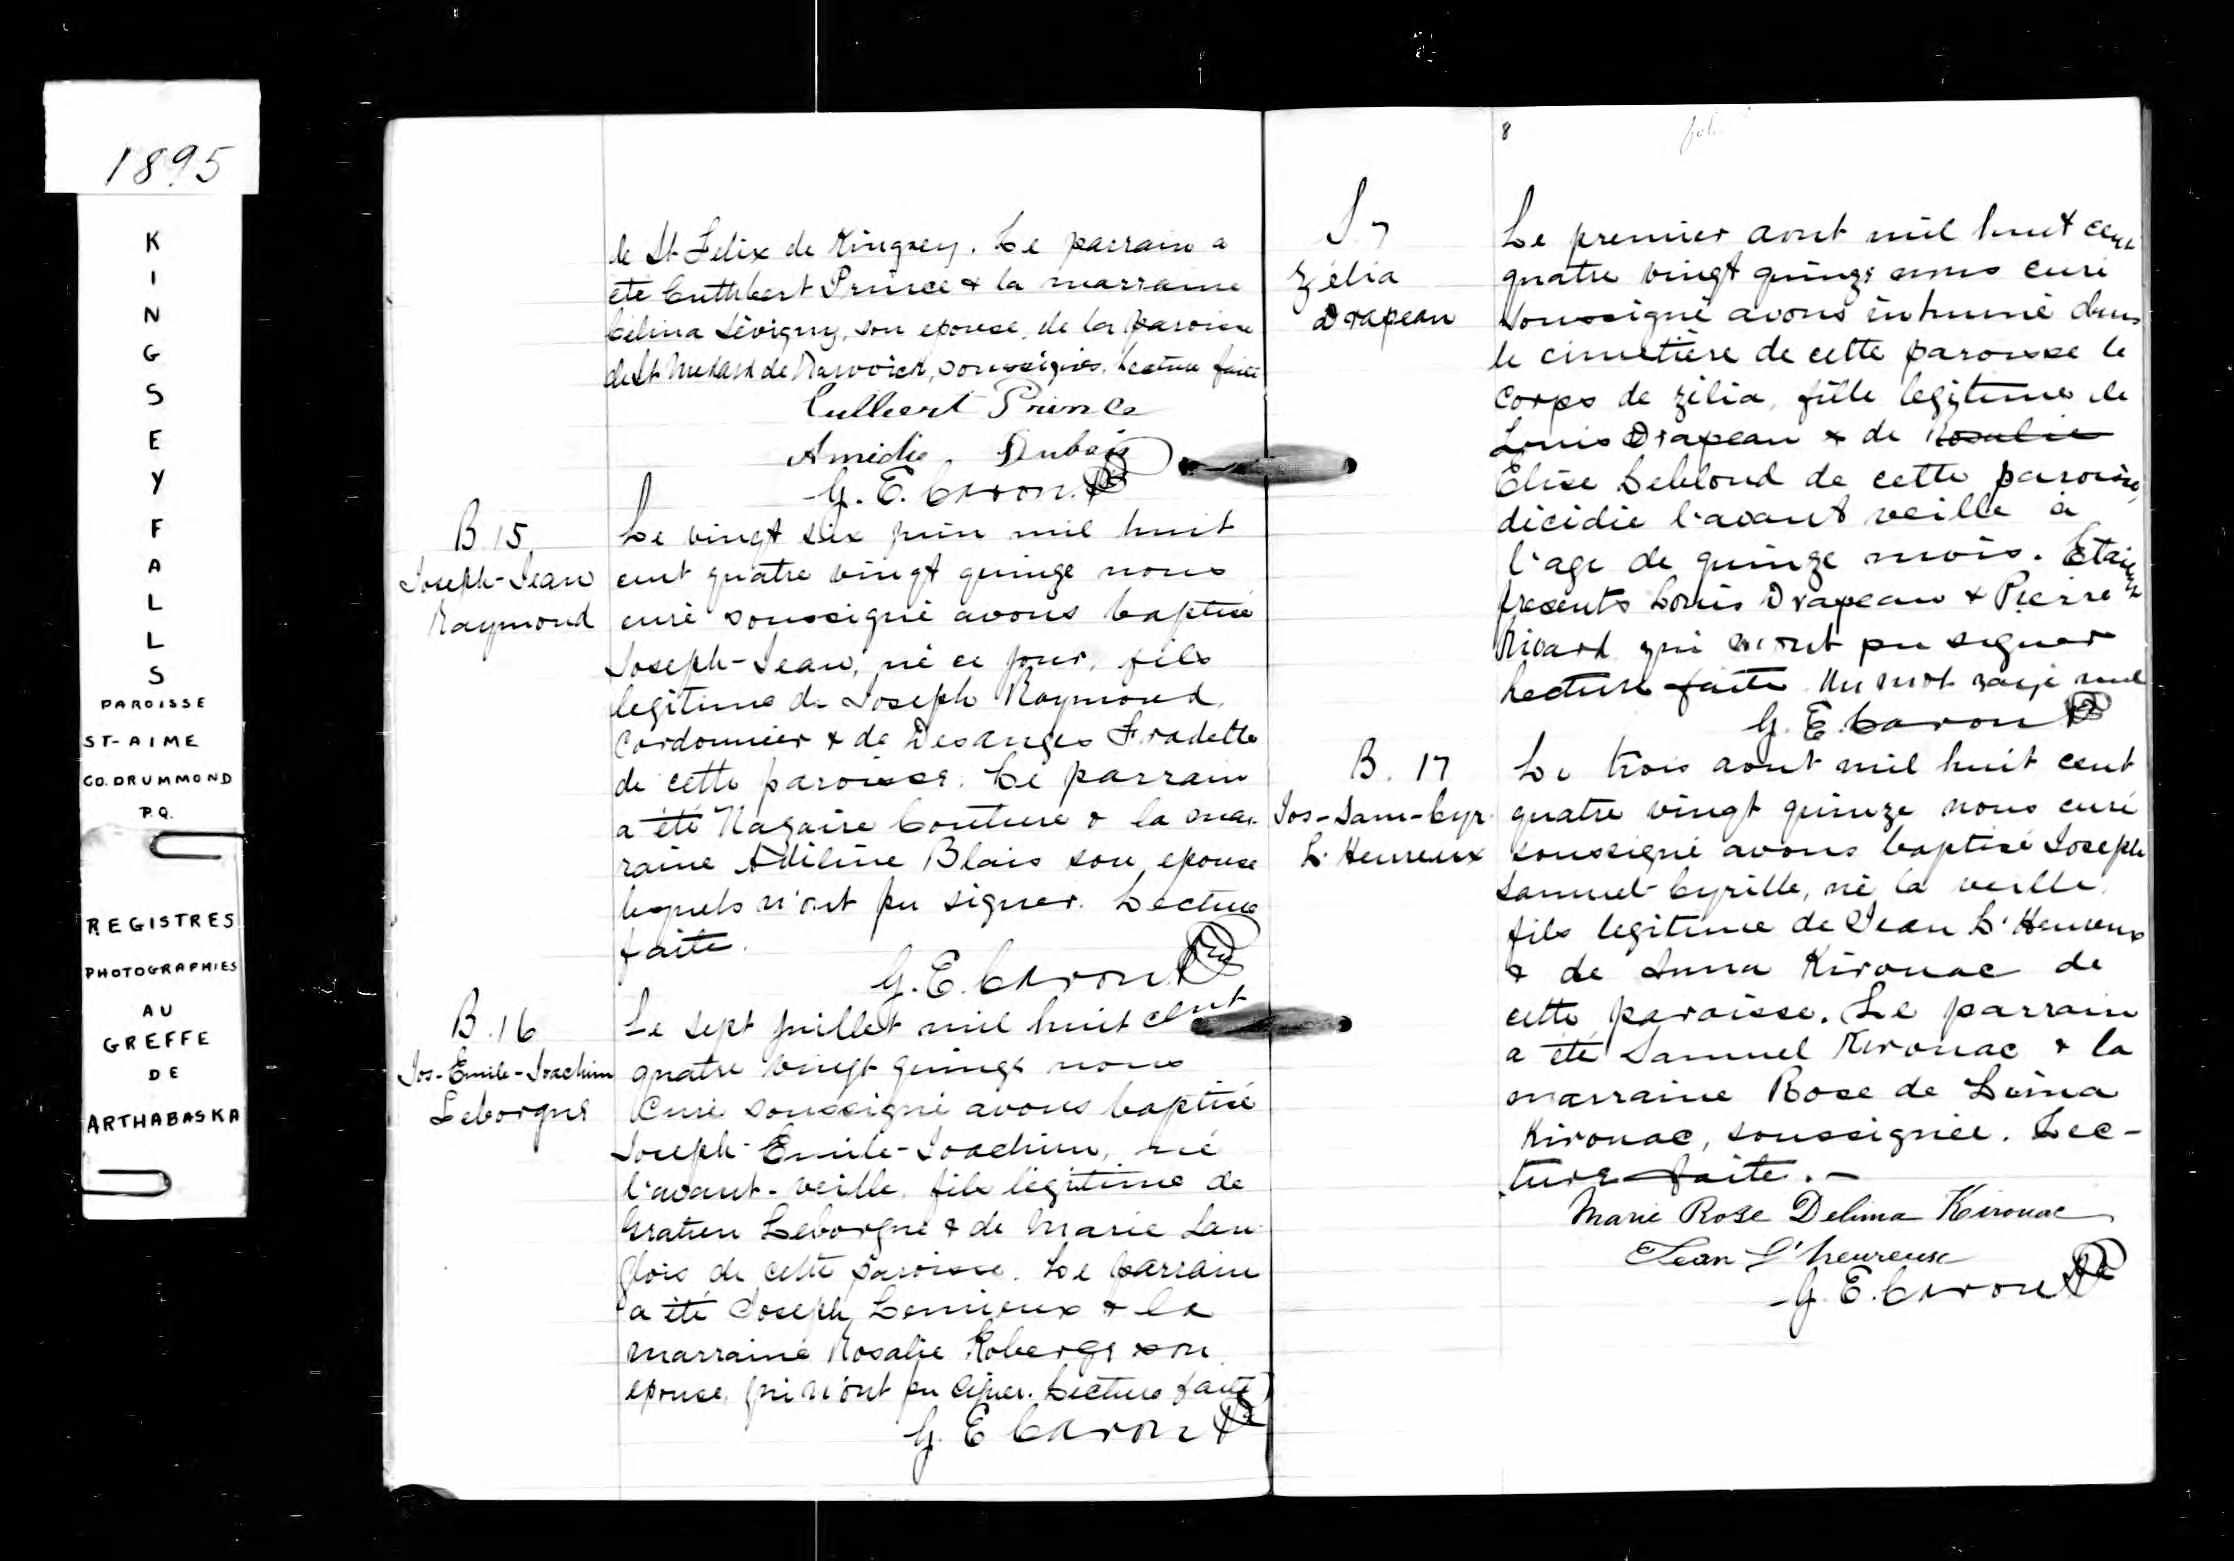 1895
KINGSEY FALLS
PAROISSE
ST-AIME
CO. DRUMMOND
P.Q.
REGISTRES
PHOTOGRAPHIES
AU
GREFFE
DE
ARTHABASKA
de St Felix de Kingsey. Le parrain a
été Cuthbert Prince & la marraine
Célina Sévigny, son epouse, de la paroisse
de St Médard de Warwick, soussignés. Lecture faite
Cutbert Prince
Amédée Dubois
G. E. Caron Ptre
B 15.
Joseph-Jean
Raymond
Le vingt six juin mil huit
cent quatre vingt quinze nous
curé soussigné avons baptisé
Joseph-Jean, né ce jour, fils
legitime de Joseph Raymond,
Cordonnier & de Desanges Fradette
de cette paroisse. Le parrain
a été Nazaire Couture & la mar
raine Adéline Blais son epouse
lesquels n'ont pu signer. Lecture
faite.
G. E. Caron Ptre
B. 16
Jos-Emile-Joachim
Leborgne
Le sept juillet mil huit cent
quatre vingt quinze nous
Curé soussigné avons baptisé
Joseph-Emile-Joachim, né
l'avant-veille, fils légitime de
Gratien Leborgne & de Marie Lan
glois de cette paroisse. Le parrain
a été Joseph Lemieux & la
marraine Rosalie Roberge son
epouse, qui n'ont pu signer. Lecture faite
G. E Caron Ptre
8
S 7
Zélia
Drapeau
Le premier aout mil huit cent
quatre vingt quinze nous curé
soussigné avons inhumé dans
le cimetière de cette paroisse le
corps de Zélia, fille legitime de
Louis Drapeau & de Rosalie
Elise Leblond de cette paroisse,
décédée l'avant veille à
l'age de quinze mois. Etaient
presents Louis Drapeau & Pierre
Rivard qui n'ont pu signer
Lecture faite. Un mot rayé nul
G. E. Caron Ptre
B. 17
Jos-Sam-Cyr.
L'Heureux
Le trois aout mil huit cent
quatre vingt quinze nous curé
soussigné avons baptisé Joseph
Samuel-Cyrille, né la veille,
fils legitime de Jean L'Heureux
& de Anna Kirouac de
cette paroisse. Le parrain
a été Samuel Kirouac & la
marraine Rose de Lima
Kirouac, soussignée. Lec-
ture faite. -
Marie Rose Delima Kirouac
Jean L'heureux
G. E. Caron Ptre